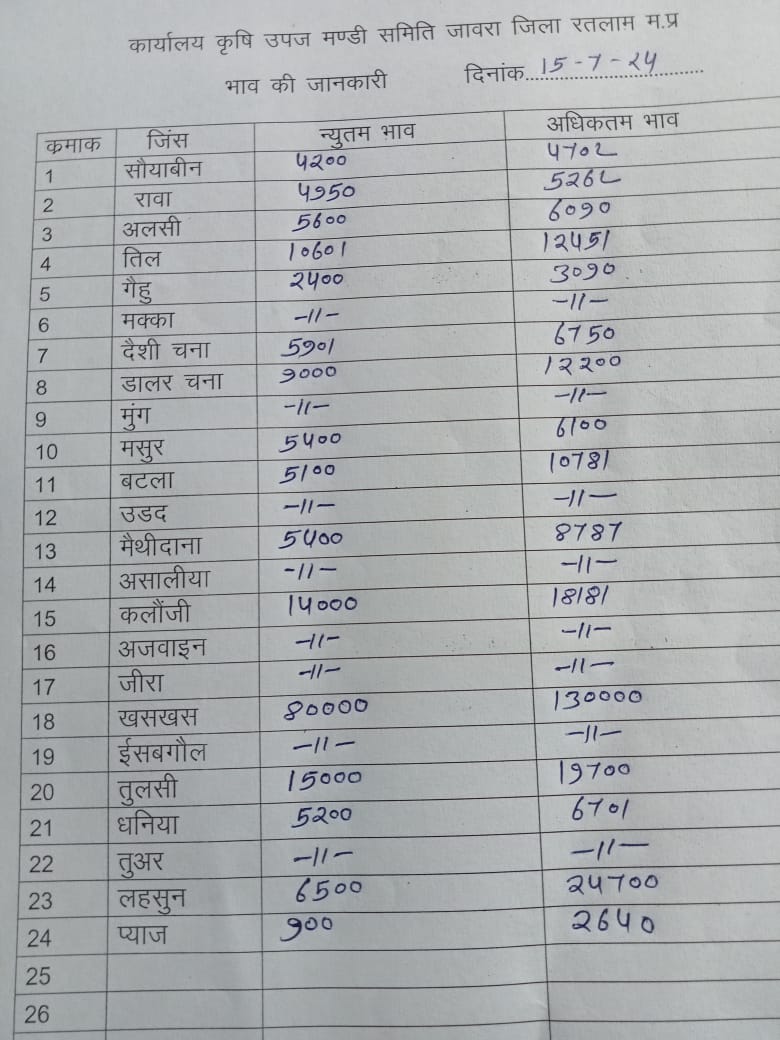 कार्यालय कृषि उपज मण्डी समिति जावरा जिला रतलाम म.प्र
भाव की जानकारी दिनांक 15-7-24
कमाक जिंस न्युतम भाव अधिकतम भाव
1 सौयाबीन 4200 4702
2 रावा 4950 5262
3 अलसी 5600 6090
4 तिल 10601 12451
5 गैहु 2400 3090
6 मक्का -11- -11-
7 दैशी चना 5901 6750
8 डालर चना 9000 12200
9 मुंग -11- -11-
10 मसुर 5400 6100
11 बटला 5100 10781
12 उडद -11- -11-
13 मैथीदाना 5400 8787
14 असालीया -11- -11-
15 कलौंजी 14000 18181
16 अजवाइन -11- -11-
17 जीरा -11- -11-
18 खसखस 80000 130000
19 ईसबगौल -11- -11-
20 तुलसी 15000 19700
21 धनिया 5200 6701
22 तुअर -11- -11-
23 लहसुन 6500 24700
24 प्याज 900 2640
25
26